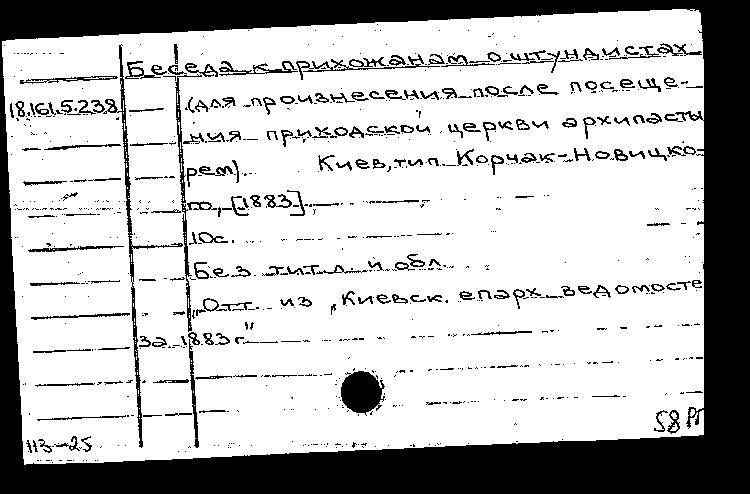 Беседа к прихожанам о штундистах
18.161.5.238 (для произнесения после посеще-
ния приходской церкви архипасты
рем). Киев, тип. Корчак-Новицко-
го, [1883].
10с.
Без тит. л. и обл.
„Отт. из „Киевск. епарх. ведомосте
за 1883 г."
113-25